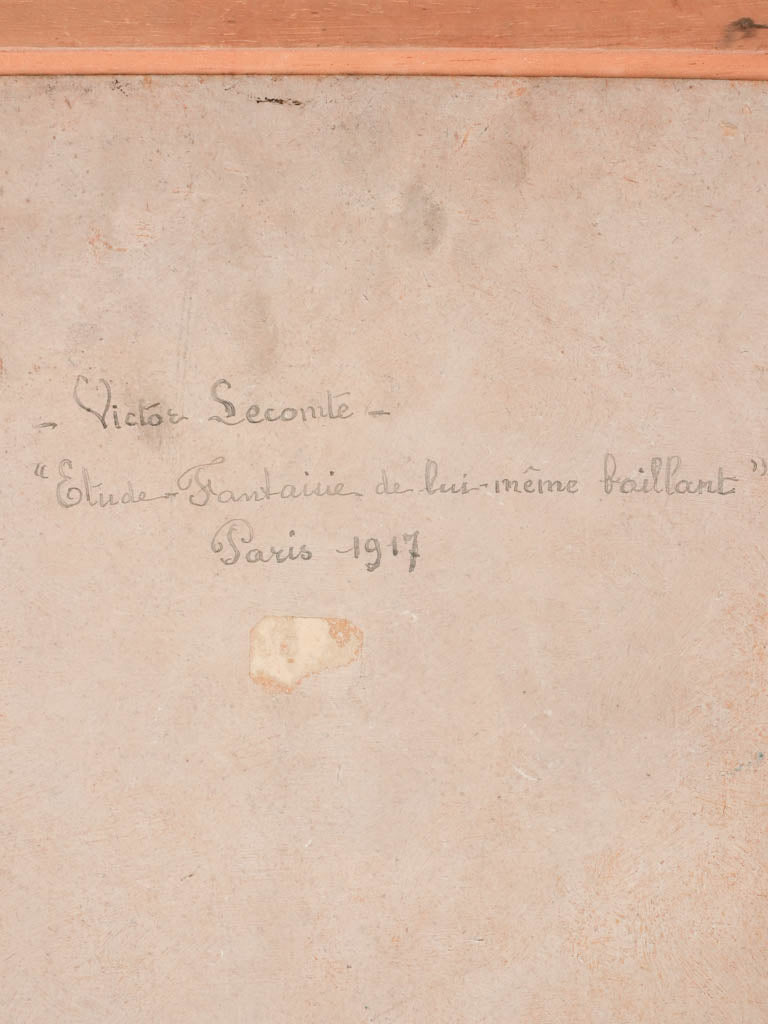 - Victor Lecomte -
"Etude-Fantaisie de lui-même baillant"
Paris 1917